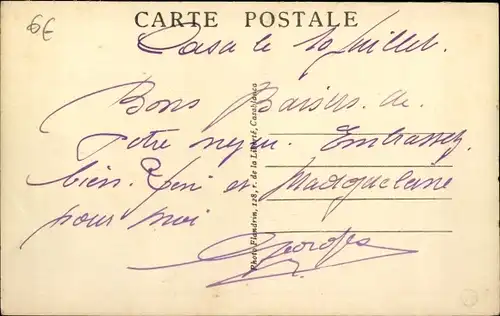 6€
CARTE POSTALE
Casa le 10 Juillet.
Bons Baisers. de.
Votre neveu. Embrassez
bien. et Margueleine
pour moi
Georges
Photo Flandrin, 128, r. de la Liberté, Casablanca